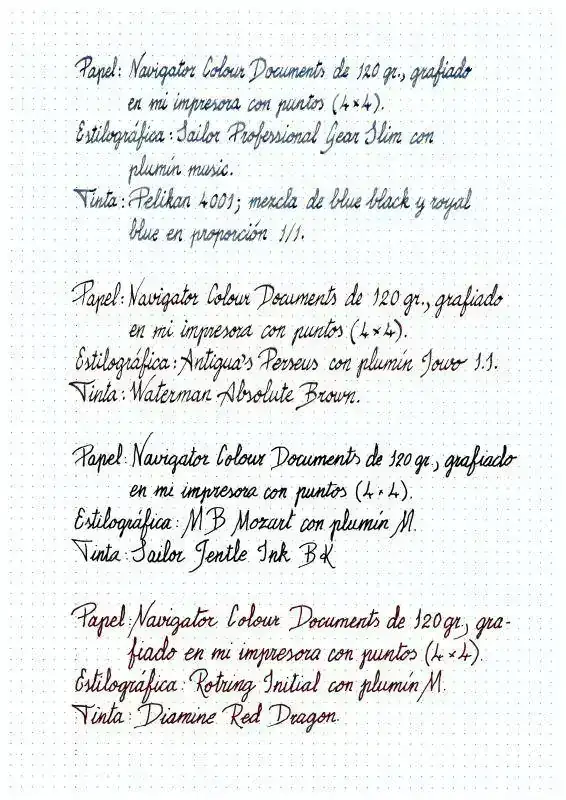 Papel: Navigator Colour Documents de 120 gr., grafiado
en mi impresora con puntos (4×4).
Estilográfica: Sailor Professional Gear Slim con
plumín music.
Tinta: Pelikan 4001; mezcla de blue black y royal
blue en proporción 1/1.
Papel: Navigator Colour Documents de 120 gr., grafiado
en mi impresora con puntos (4×4).
Estilográfica: Antigua's Perseus con plumín Jowo 1.1.
Tinta: Waterman Absolute Brown.
Papel: Navigator Colour Documents de 120 gr., grafiado
en mi impresora con puntos (4×4).
Estilográfica: MB Mozart con plumín M.
Tinta: Sailor Jentle Ink BK
Papel: Navigator Colour Documents de 120 gr., gra-
fiado en mi impresora con puntos (4×4).
Estilográfica: Rotring Initial con plumín M.
Tinta: Diamine Red Dragon.